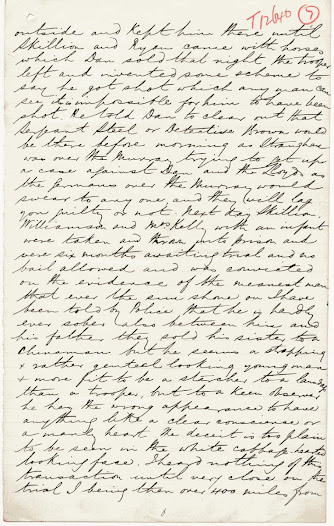 T12640 (5)
outside and kept him there until
Skillion and Ryan came with horses
which Dan sold that night the trooper
left and invented some scheme to
say he got shot which any man can
see it is impossible for him to have been
shot He told Dan to clear out that
Sergeant Steel or Detective Brown would
be there before morning as Straughan
was over the Murray trying to get up
a case against Dan and the Lloyds as
the Germans over the Murray would
swear to any one and they will lag
you guilty or not. Next day Skillion,
Williamson and Mrs Kelly with an infant
were taken and thrown into prison and
were six months awaiting trial and no
bail allowed and was convicted
on the evidence of the meanest man
that ever the sun shone on I have
been told by Police that he is hardly
ever sober also between him and
his father they sold his sister to a
chinaman but he seems a strapping
& rather genteel looking young man
& more fit to be a starcher to a laundry
than a trooper, but to a keen observer
he has the wrong appearance to have
anything like a clear conscience or
a manly heart the deceit is too plain
to be seen in the white cabbage hearted
looking face. I heard nothing of the
transaction until very close on the
trial I being then over 400 miles from